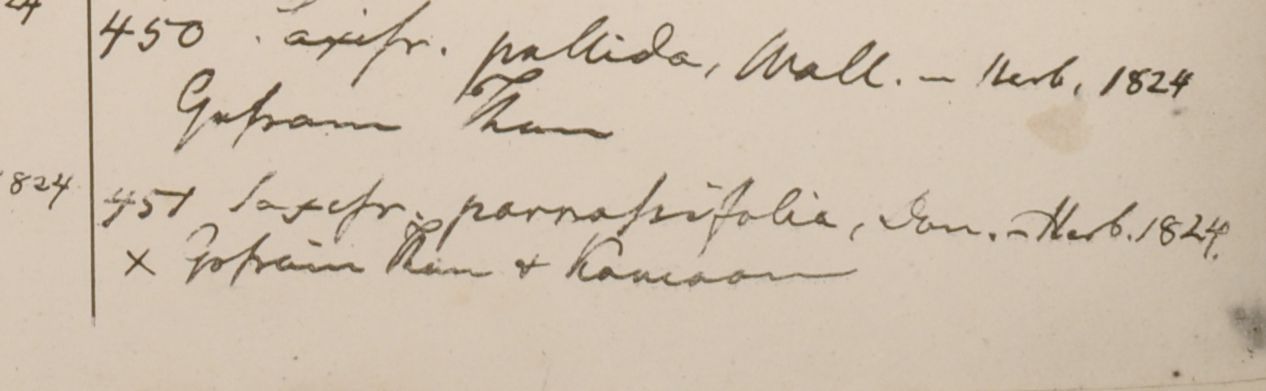 24
450 Saxifr. pallida, Wall. — Herb. 1824
Gosram Than
1824 451 Saxifr. parnassifolia, Don. — Herb. 1824.
× Gosain Than & Kamaon